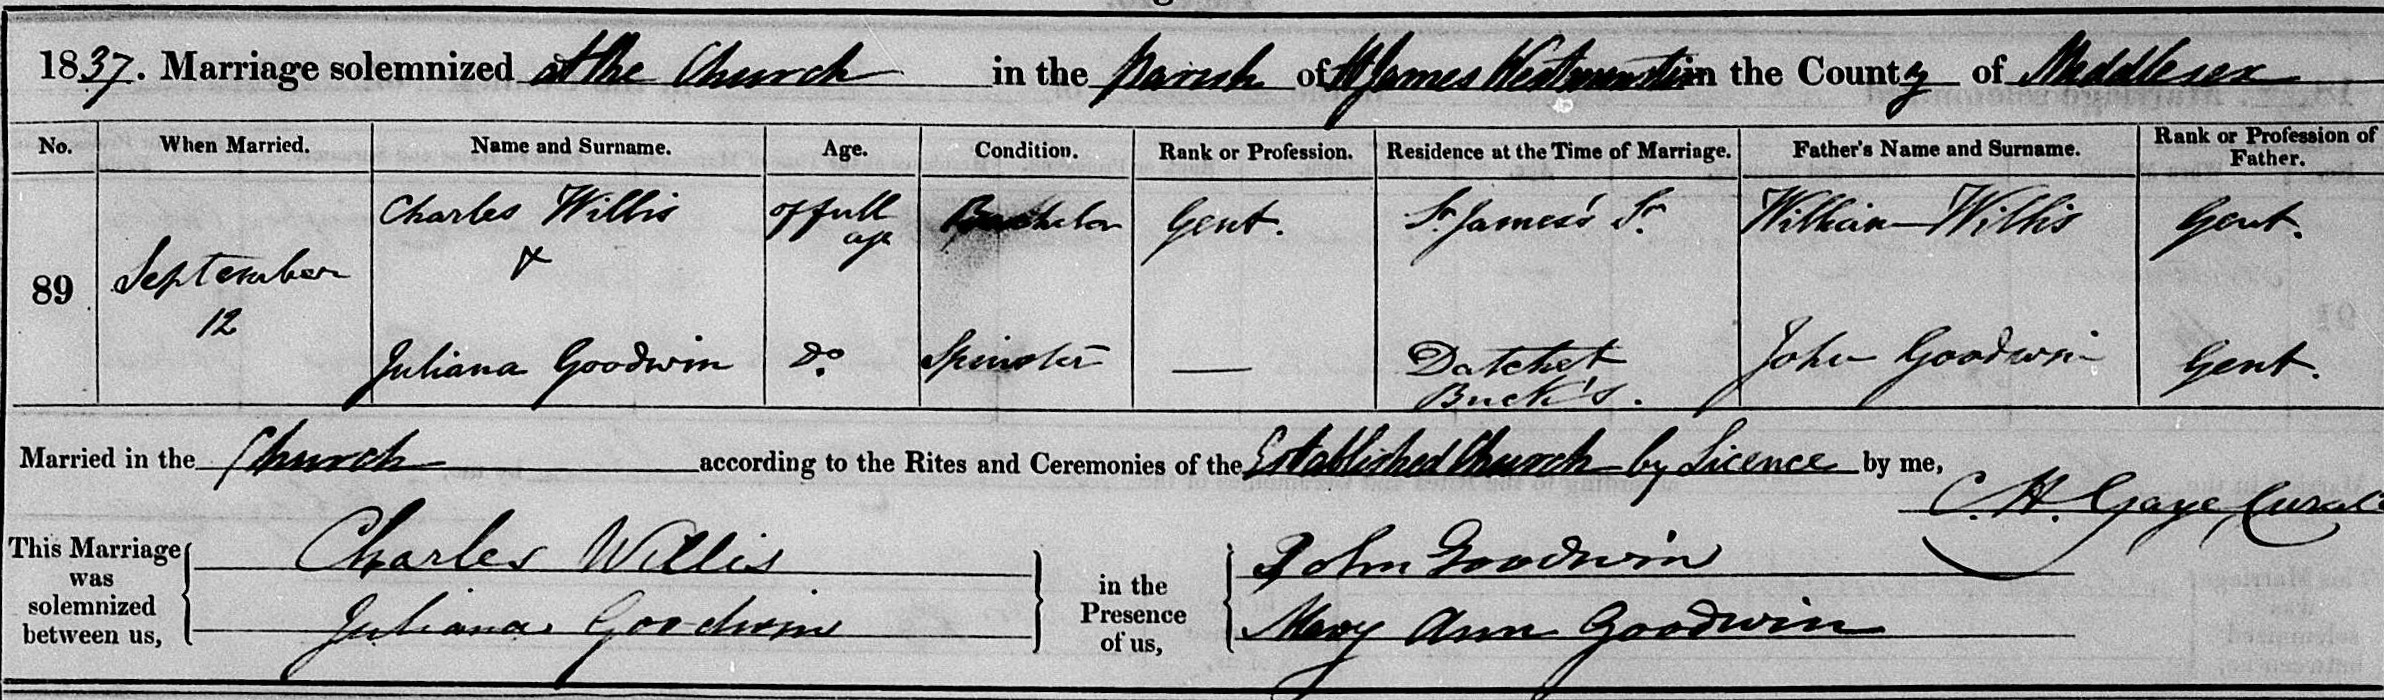 1837. Marriage solemnized at the Church in the Parish of St James Westminster in the County of Middlesex
No. When Married. Name and Surname. Age. Condition. Rank or Profession. Residence at the Time of Marriage. Father's Name and Surname. Rank or Profession of Father.
89 September 12
Charles Willis of full age Bachelor Gent. St. James's St. William Willis Gent.
&
Juliana Goodwin Do. Spinster — Datchet Buck's. John Goodwin Gent.
Married in the Church according to the Rites and Ceremonies of the Established Church by Licence by me,
C. H. Gaye, Curate
This Marriage was solemnized between us, Charles Willis in the Presence of us, John Goodwin
Juliana Goodwin Mary Ann Goodwin